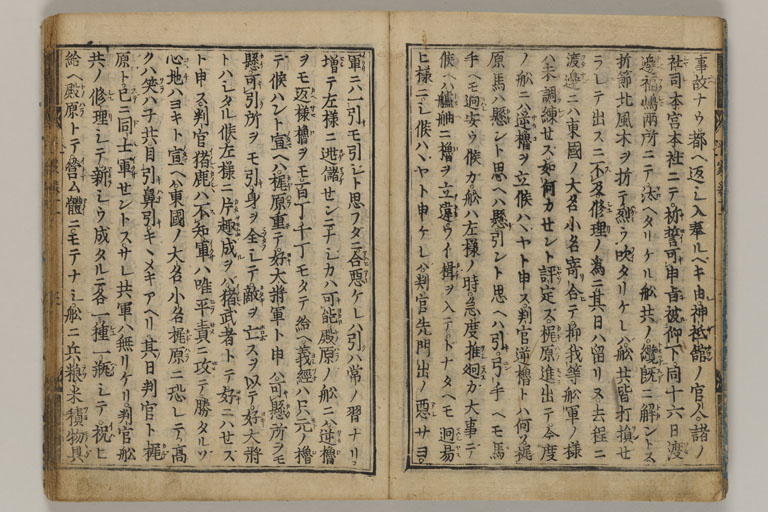 事故ナウ都ヘ返シ入奉ルベキ由神祇館ノ官人諸ノ
社司本宮本社ニテ祈誓可申旨被仰下同十六日渡
邊福嶋兩所ニテ汰ヘタリケル舩共ノ纜既ニ解ントス
折節北風木ヲ折テ烈ウ吹タリケレハ舩共皆打損セ
ラレテ出スニ不及修理ノ為ニ其日ハ留リヌ去程ニ
渡邊ニハ東國ノ大名小名寄合テ抑我等舩軍ノ様
ハ未調練セス如何カセント評定ス梶原進出テ今度
ノ舩ニハ逆櫓ヲ立候ハヤト申ス判官逆櫓トハ何ソ梶
原馬ハ懸ント思ヘハ懸引ント思ヘハ引弓手ヘモ馬
手ヘモ廻安ウ候カ舩ハ左様ノ時急度推廻カ大事テ
候ヘハ艫舳ニ櫓ヲ立違ウイ楫ヲ入テトナタヘモ廻易
ヒ様ニシ候ハヽヤト申ケレハ判官先門出ノ惡サヨ
軍ニハ一引モ引シト思フダニ合惡ケレハ引ハ常ノ習ナリ
増テ左様ニ逃儲センニナシカハ可能殿原ノ舩ニハ逆櫓
ヲモ返様櫓ヲモ百丁千丁モタテ給ヘ義經ハ只元ノ櫓
テ候ハント宣ヘハ梶原重テ好大將軍ト申ハ可懸所ヲモ
懸可引所ヲモ引身ヲ全シテ敵ヲ亡スヲ以テ好大將
トハシタル候左様ニ片趣成ヲハ猪武者トテ好ニハセズ
ト申ス判官猪鹿ハ不知軍ハ唯平責ニ攻テ勝タルソ
心地ハヨキト宣ヘハ東國ノ大名小名梶原ニ恐レテ高
クハ笑ハ子共目引鼻引キヽメキアヘリ其日判官ト梶
原ト已ニ同士軍セントスサレ共軍ハ無リケリ判官舩
共ノ修理シテ新シウ成タルニ各一種一瓶シテ祝ヒ
給ヘ殿原トテ營ム體ニモテナシ舩ニ兵粮米積物具